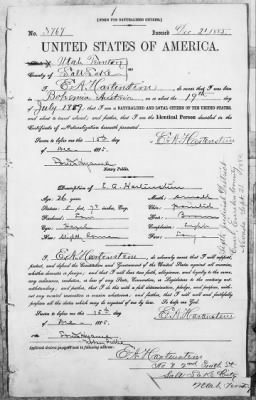 [FORM FOR NATURALIZED CITIZEN.]
No. 3767 Issued Dec 21 1885
UNITED STATES OF AMERICA.
Utah Territory
County of Salt Lake
I, E. A. Hartenstein, do swear that I was born
in Bohemia Austria, on or about the 19th day
July 1859; that I am a NATURALIZED AND LOYAL CITIZEN OF THE UNITED STATES,
and about to travel abroad; and further, that I am the Identical Person described in the
Certificate of Naturalization herewith presented
Sworn to before me this 15th E. A. Hartenstein
day of Dec 1885.
Notary Public.
Description of E. A. Hartenstein
Age: 26 years Mouth: small
Stature: 5 feet, 7½ inches, Eng. Chin: pointed
Forehead: Low Hair: Brown
Eyes: Hazel Complexion: Light
Nose: Face: Long
I, E. A. Hartenstein, do solemnly swear that I will support,
protect, and defend the Constitution and Government of the United States against all enemies,
whether domestic or foreign; and that I will bear true faith, allegiance, and loyalty to the same,
any ordinance, resolution, or law of any State, Convention, or Legislature to the contrary not-
withstanding; and further, that I do this with a full determination, pledge, and purpose, with-
out any mental reservation or evasion whatsoever; and further, that I will well and faithfully
perform all the duties which may be required of me by law. So help me God.
Sworn to before me this 15th E. A. Hartenstein
day of Dec 1885.
Notary Public
Applicant desires passport sent to following address:
E. A. Hartenstein
2nd South St
Salt Lake City
Utah Terr